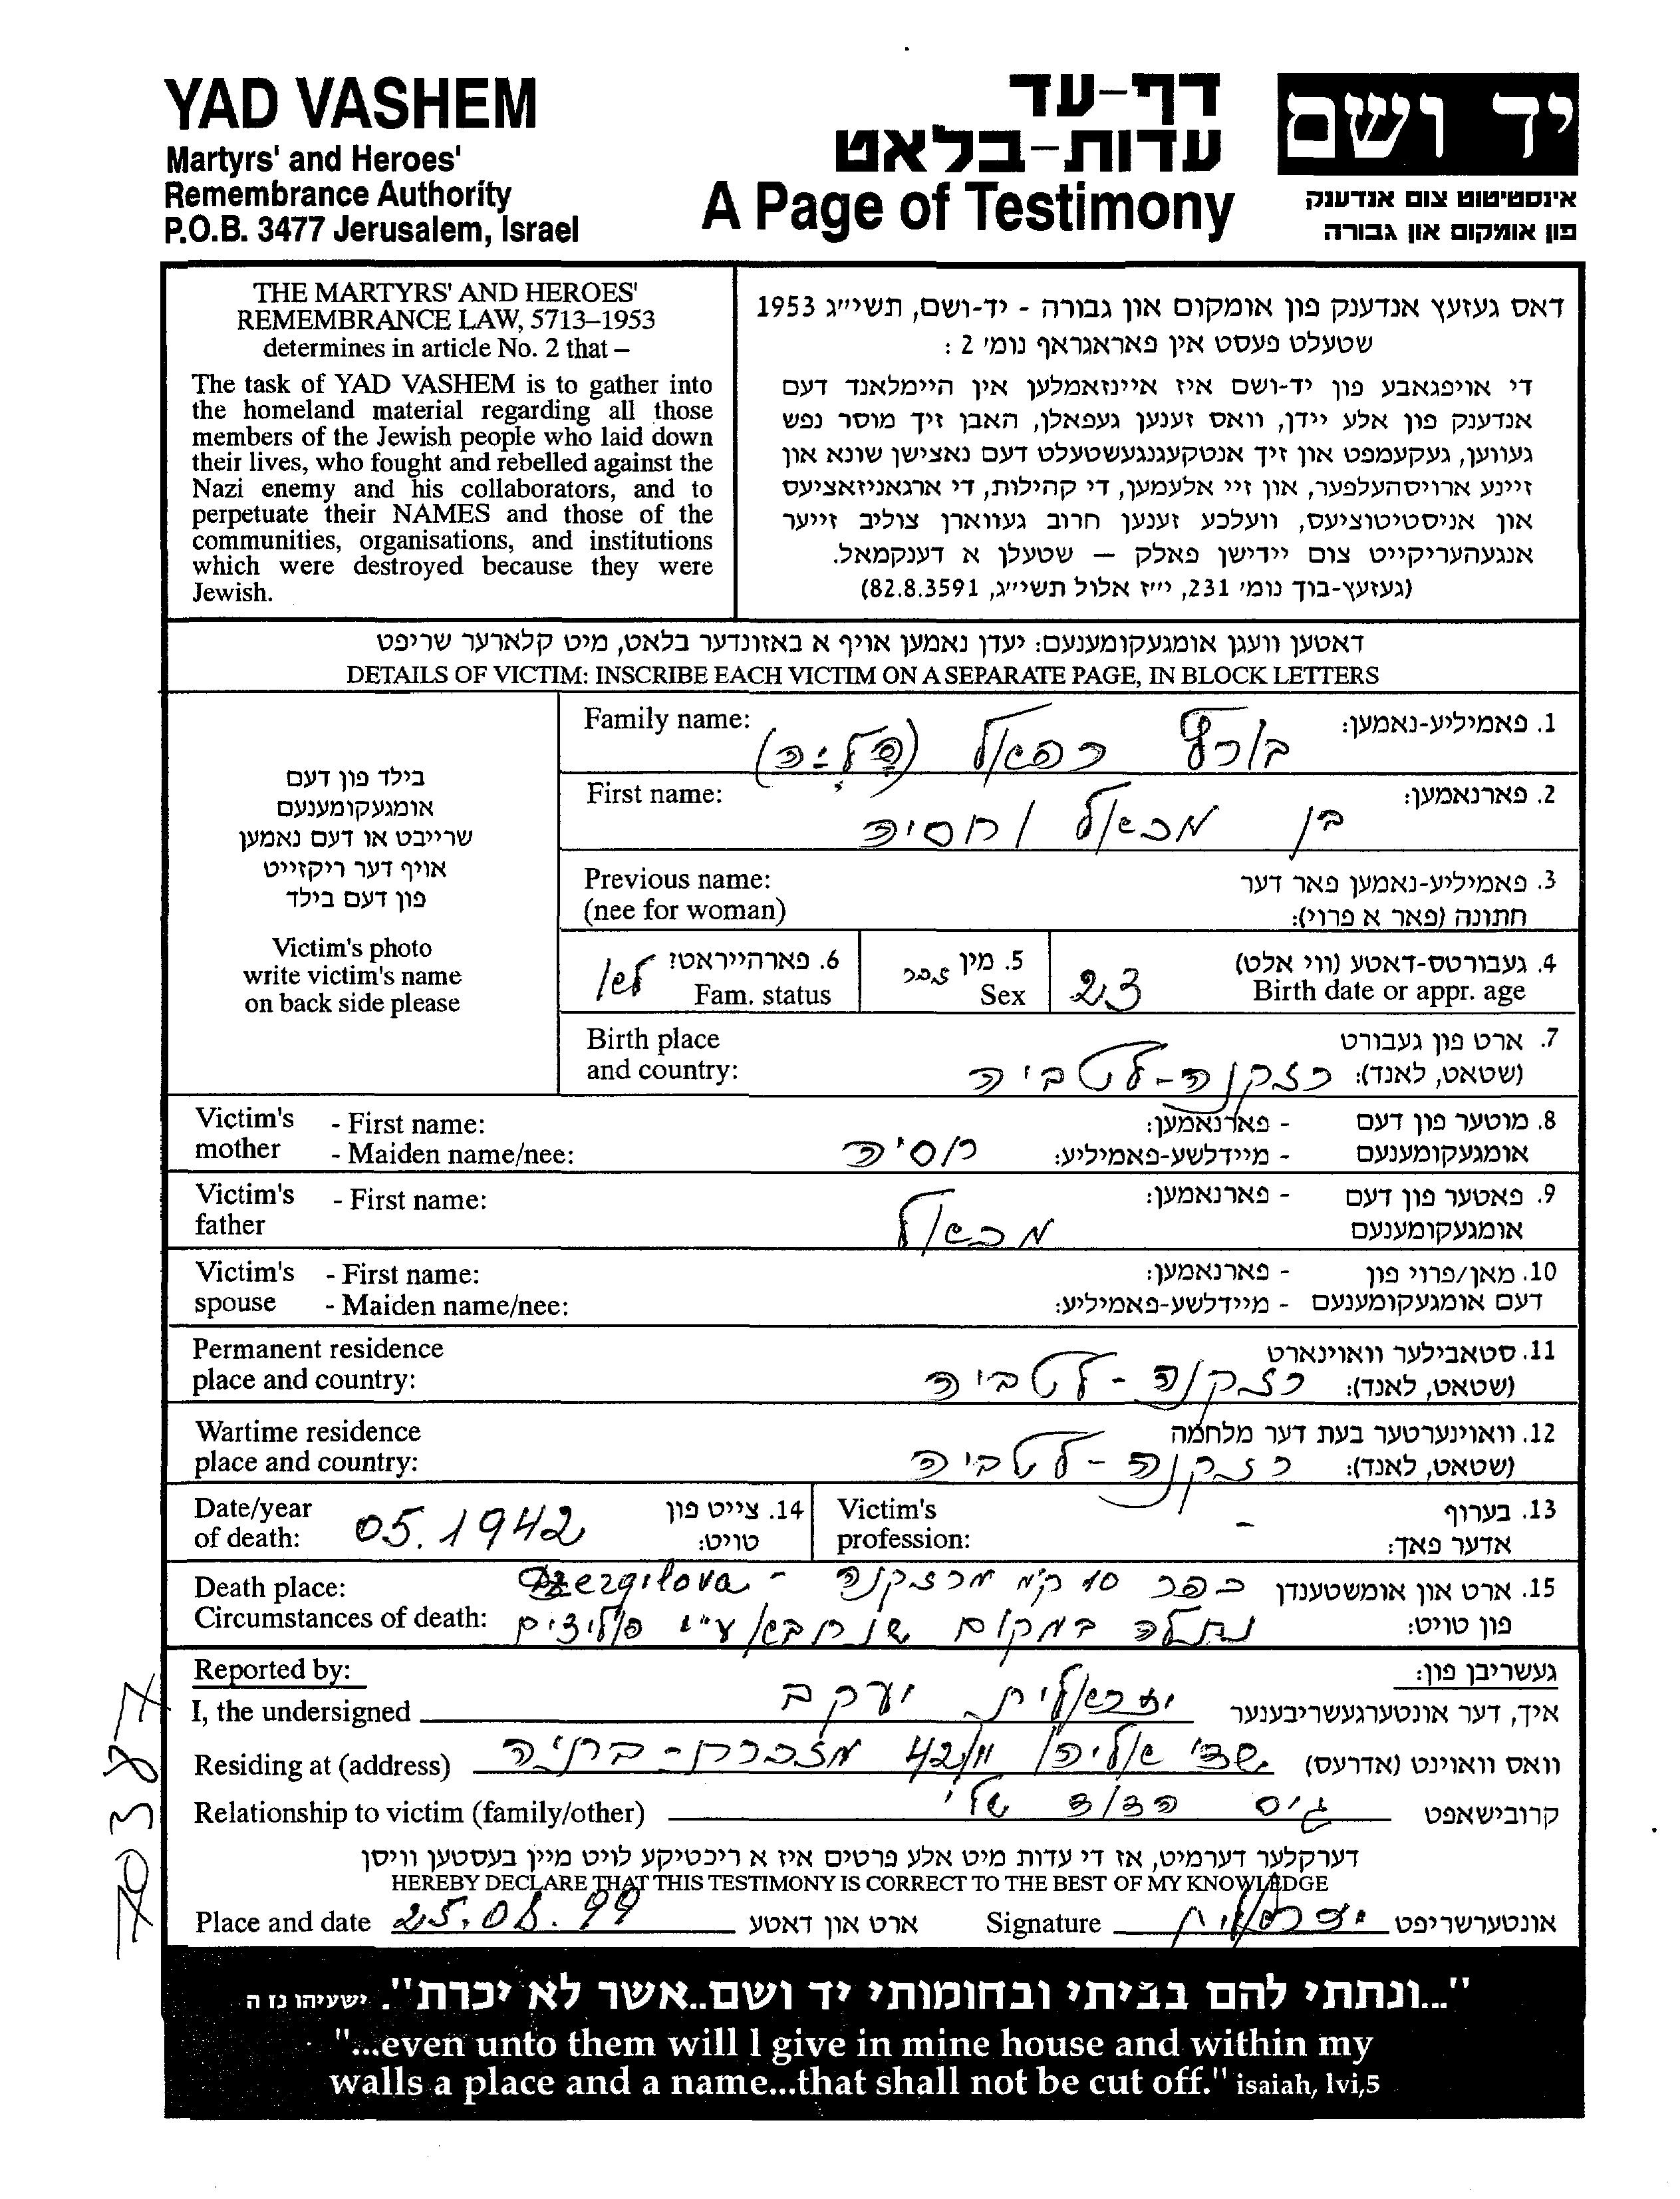 YAD VASHEM
Martyrs' and Heroes'
Remembrance Authority
P.O.B. 3477 Jerusalem, Israel
דף-עד
עדות-בלאט
A Page of Testimony
יד ושם
אינסטיטוט צום אנדענק
פון אומקום און גבורה
THE MARTYRS' AND HEROES'
REMEMBRANCE LAW, 5713–1953
determines in article No. 2 that –
The task of YAD VASHEM is to gather into
the homeland material regarding all those
members of the Jewish people who laid down
their lives, who fought and rebelled against the
Nazi enemy and his collaborators, and to
perpetuate their NAMES and those of the
communities, organisations, and institutions
which were destroyed because they were
Jewish.
דאס געזעץ אנדענק פון אומקום און גבורה - יד-ושם, תשי״ג 1953
שטעלט פעסט אין פאראגראף נומ׳ 2 :
די אויפגאבע פון יד-ושם איז איינזאמלען אין היימלאנד דעם
אנדענק פון אלע יידן, וואס זענען געפאלן, האבן זיך מוסר נפש
געווען, געקעמפט און זיך אנטקעגנגעשטעלט דעם נאצישן שונא און
זיינע ארויסהעלפער, און זיי אלעמען, די קהילות, די ארגאניזאציעס
און אניסטיטוציעס, וועלכע זענען חרוב געווארן צוליב זייער
אנגעהעריקייט צום יידישן פאלק – שטעלן א דענקמאל.
(געזעץ-בוך נומ׳ 231, י״ז אלול תשי״ג, 82.8.3591)
דאטען וועגן אומגעקומענעם: יעדן נאמען אויף א באזונדער בלאט, מיט קלארער שריפט
DETAILS OF VICTIM: INSCRIBE EACH VICTIM ON A SEPARATE PAGE, IN BLOCK LETTERS
בילד פון דעם
אומגעקומענעם
שרייבט או דעם נאמען
אויף דער ריקזייט
פון דעם בילד
Victim's photo
write victim's name
on back side please
Family name: 1. פאמיליע-נאמען:
רפאל
First name: 2. פארנאמען:
בן מכאל וחסיה
Previous name: 3. פאמיליע-נאמען פאר דער
(nee for woman) חתונה (פאר א פרוי):
4. געבורטס-דאטע (ווי אלט) 23
Birth date or appr. age
5. מין זכר
Sex
6. פארהייראט? לא
Fam. status
Birth place 7. ארט פון געבורט
and country: (שטאט, לאנד): רזקנה-לטביה
Victim's - First name: 8. מוטער פון דעם - פארנאמען:
mother - Maiden name/nee: אומגעקומענעם - מיידלשע-פאמיליע: חסיה
Victim's - First name: 9. פאטער פון דעם - פארנאמען:
father אומגעקומענעם מכאל
Victim's - First name: 10. מאן/פרוי פון - פארנאמען:
spouse - Maiden name/nee: דעם אומגעקומענעם - מיידלשע-פאמיליע:
Permanent residence 11. סטאבילער וואוינארט
place and country: (שטאט, לאנד): רזקנה-לטביה
Wartime residence 12. וואוינערטער בעת דער מלחמה
place and country: (שטאט, לאנד): רזקנה-לטביה
Date/year 14. צייט פון
of death: 05.1942 טויט:
Victim's 13. בערוף
profession: - אדער פאך:
Death place: 15. ארט און אומשטענדן כפר 10 ק״מ מרזקנה -
Circumstances of death: פון טויט: נתלה במקום ע״י
Reported by: געשריבן פון:
I, the undersigned איך, דער אונטערגעשריבענער יזראלית יעקב
Residing at (address) וואס וואוינט (אדרעס) 42/11
Relationship to victim (family/other) קרובישאפט גיס הדוד שלי
דערקלער דערמיט, אז די עדות מיט אלע פרטים איז א ריכטיקע לויט מיין בעסטען וויסן
HEREBY DECLARE THAT THIS TESTIMONY IS CORRECT TO THE BEST OF MY KNOWLEDGE
Place and date 25.08.99 ארט און דאטע Signature אונטערשריפט
703877
"...ונתתי להם בביתי ובחומותי יד ושם..אשר לא יכרת". ישעיהו נז ה
"...even unto them will I give in mine house and within my
walls a place and a name...that shall not be cut off." isaiah, lvi,5